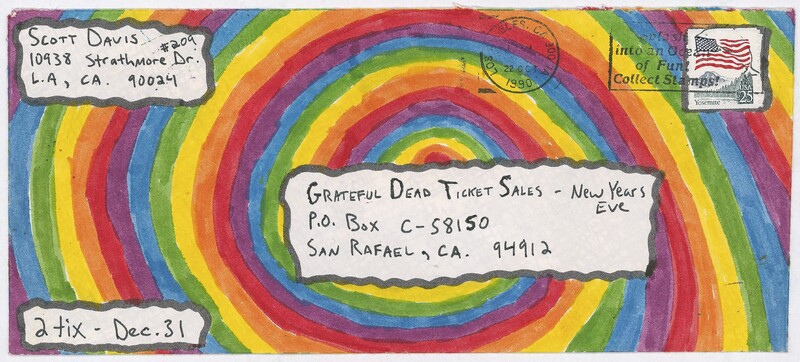 SCOTT DAVIS
#209
10938 Strathmore Dr.
L.A., CA. 90024
LOS ANGELES, CA 900
22 OCT
1990
into an Ocean
of Fun!
Collect Stamps!
USA
25
Yosemite
GRATEFUL DEAD TICKET SALES - New Years
Eve
P.O. Box C-58150
SAN RAFAEL, CA. 94912
2 tix - Dec. 31